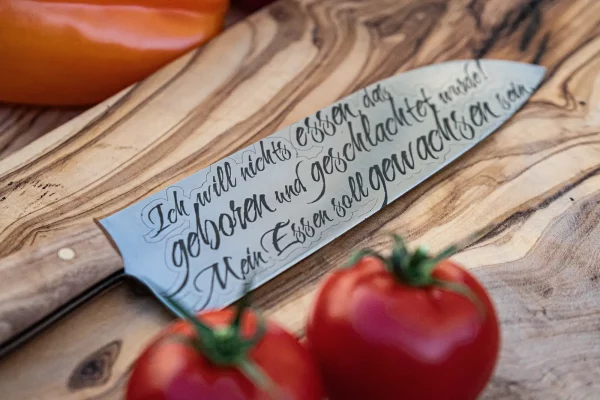 Ich will nichts essen das
geboren und geschlachtet wurde!
Mein Essen soll gewachsen sein.